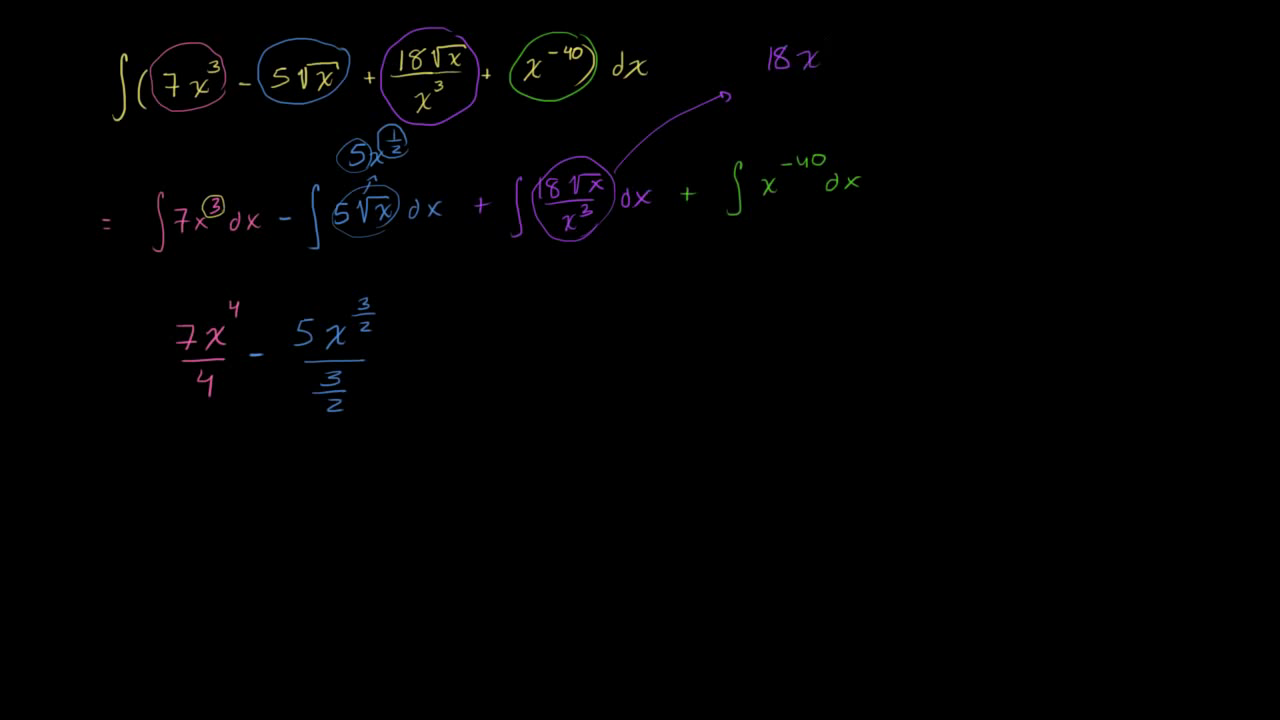 ∫(7x³ - 5√x + 18√x/x³ + x⁻⁴⁰) dx
18x
5x^(1/2)
= ∫7x³ dx - ∫5√x dx + ∫18√x/x³ dx + ∫x⁻⁴⁰ dx
7x⁴/4 - 5x^(3/2)/(3/2)